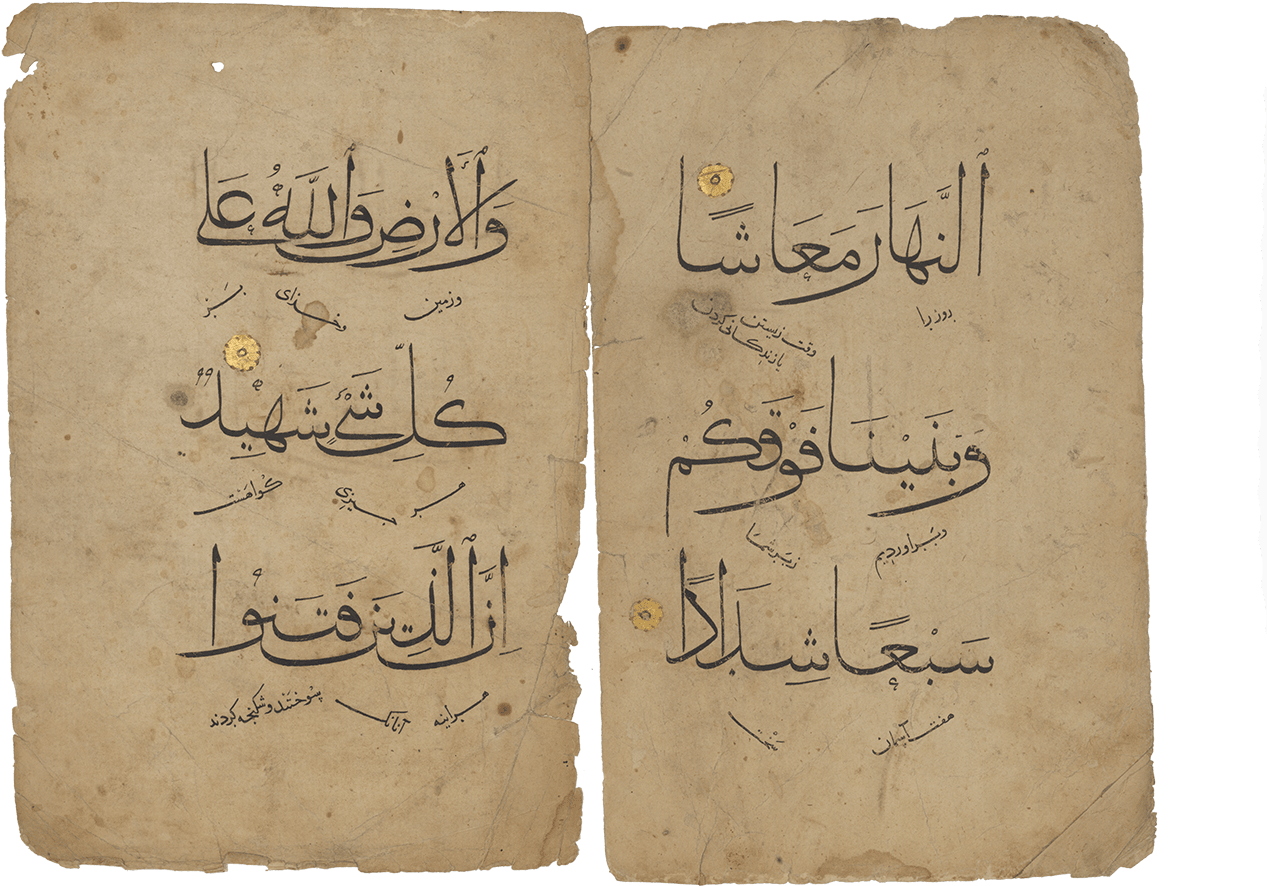 النَّهَارَ مَعَاشًا
روز را وقت زیستن
یا زندگانی کردن
وَبَنَيْنَا فَوْقَكُمْ
و براوردیم زبر شما
سَبْعًا شِدَادًا
هفت آسمان سخت
وَالْأَرْضِ وَاللَّهُ عَلَىٰ
و زمین و خدای بر
كُلِّ شَيْءٍ شَهِيدٌ
هر چیزی گواهست
إِنَّ الَّذِينَ فَتَنُوا
هراینه آنانک بسوختند و شکنجه کردند